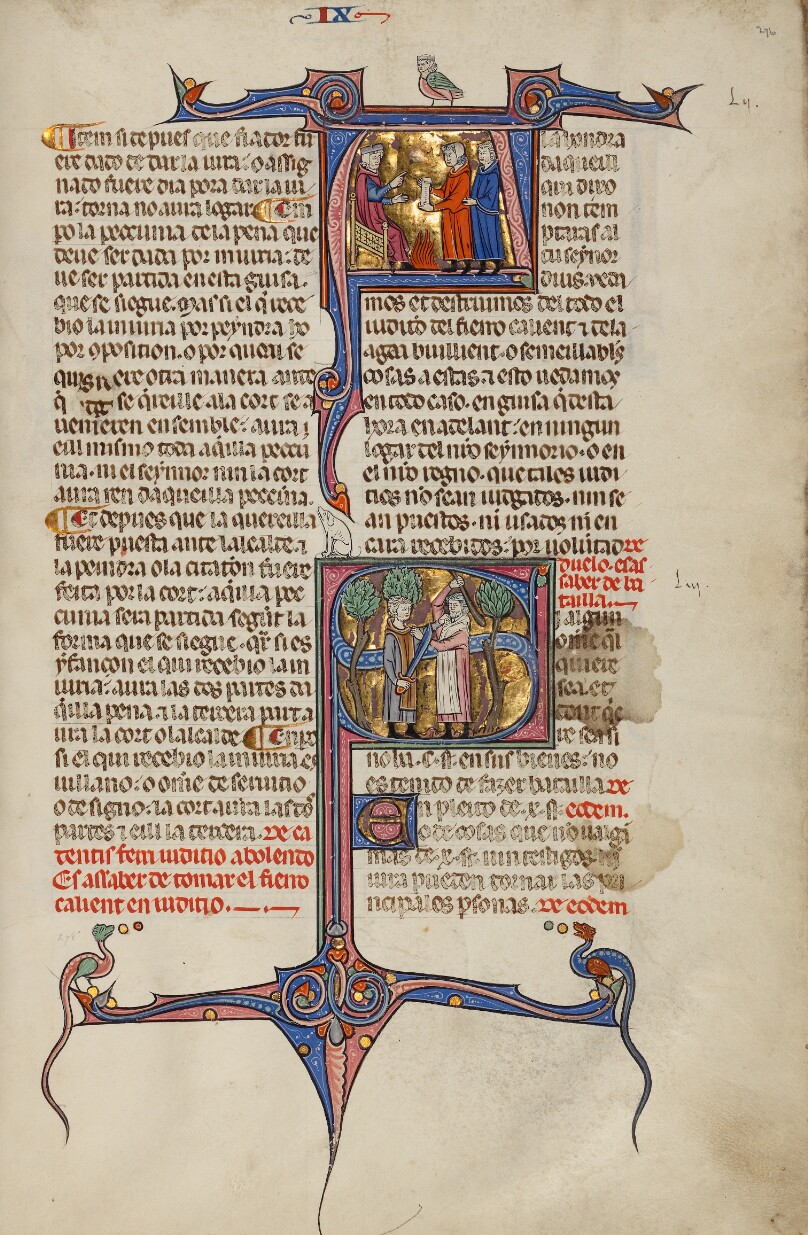 IX
296
Item si depues que fiador fu
ere dado de dar la iura o assig
nado fuere dia pora dar la iu
ra torna no aura logar En
po la peccunia de la pena que
deue ser dada por iniuria de
ue ser partida en esta guisa
que se siegue. Mas si el q̄ rece
bio la iniuria por peyndra ho
por oposition. o por
ere otra manera ante
q̄ se q̄reille a la cort se a
uenieren en semble aura
eill mismo toda aq̄lla peccu
nia. ni el seynnor nin la cort
aura ren daqueilla peccunia.
Et depues que la quereilla
fuere puesta ante lalcalde. ⁊
la peindra o la citation fuere
feita por la cort aq̄lla pec
cunia sera partida segūt la
forma que se siegue. qr̄ si es
yffançon el qui recebio la in
iuria aura las dos partes da
q̄lla pena ⁊ la tercera parta
ura la cort o lalcalde
si el qui recebio la iniuria es
uillano o omē de seruitio
o de signo. la cort aura las dos
partes ⁊ eill la tercera. De ca
dentis ferri iuditio abolendo
Es assaber de tomar el fierro
calient en iuditio.
La hondra
daqueill
qui dixo
non tem
ptaras al
tu seynor
dius. vedi
mos et destruimos del todo el
iuditio del fierro calient ⁊ de la
agoa buillient. o semeillables
cosas a estas. ⁊ esto uedamos
en todo caso. en guisa q̄ desta
hora en adelant en ningun
logar del nr̄o seynnorio. o en
el nr̄o regno. que tales iudi
tios nō sean iudgados. nin se
an priestos. ni usados ni en
cara recebidos. por uolūtad De
duelo. es as
saber de ba
tailla.
Si algun
omē q̄l
quiere
sea. et
tout
re se assi
no ha. c. ss. en sus bienes. no
es tenido de fazer batailla De
En pleito de. x. ss. eodem.
o de cosas que no ualgā
mas de. x. ss. nin testigos
iura pueden tornar las pri
ncipales psonas. De eodem